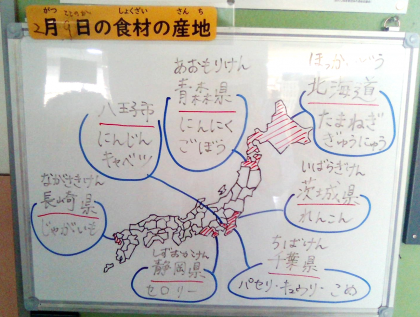 がつ ここのか しょくざい さんち
2月9日の食材の産地
ほっかいどう
北海道
たまねぎ
ぎゅうにゅう
あおもりけん
青森県
にんにく
ごぼう
八王子
にんじん
キャベツ
ながさきけん
長崎県
じゃがいも
いばらきけん
茨城県
れんこん
しずおかけん
静岡県
セロリー
ちばけん
千葉県
パセリ・きゅうり・こめ